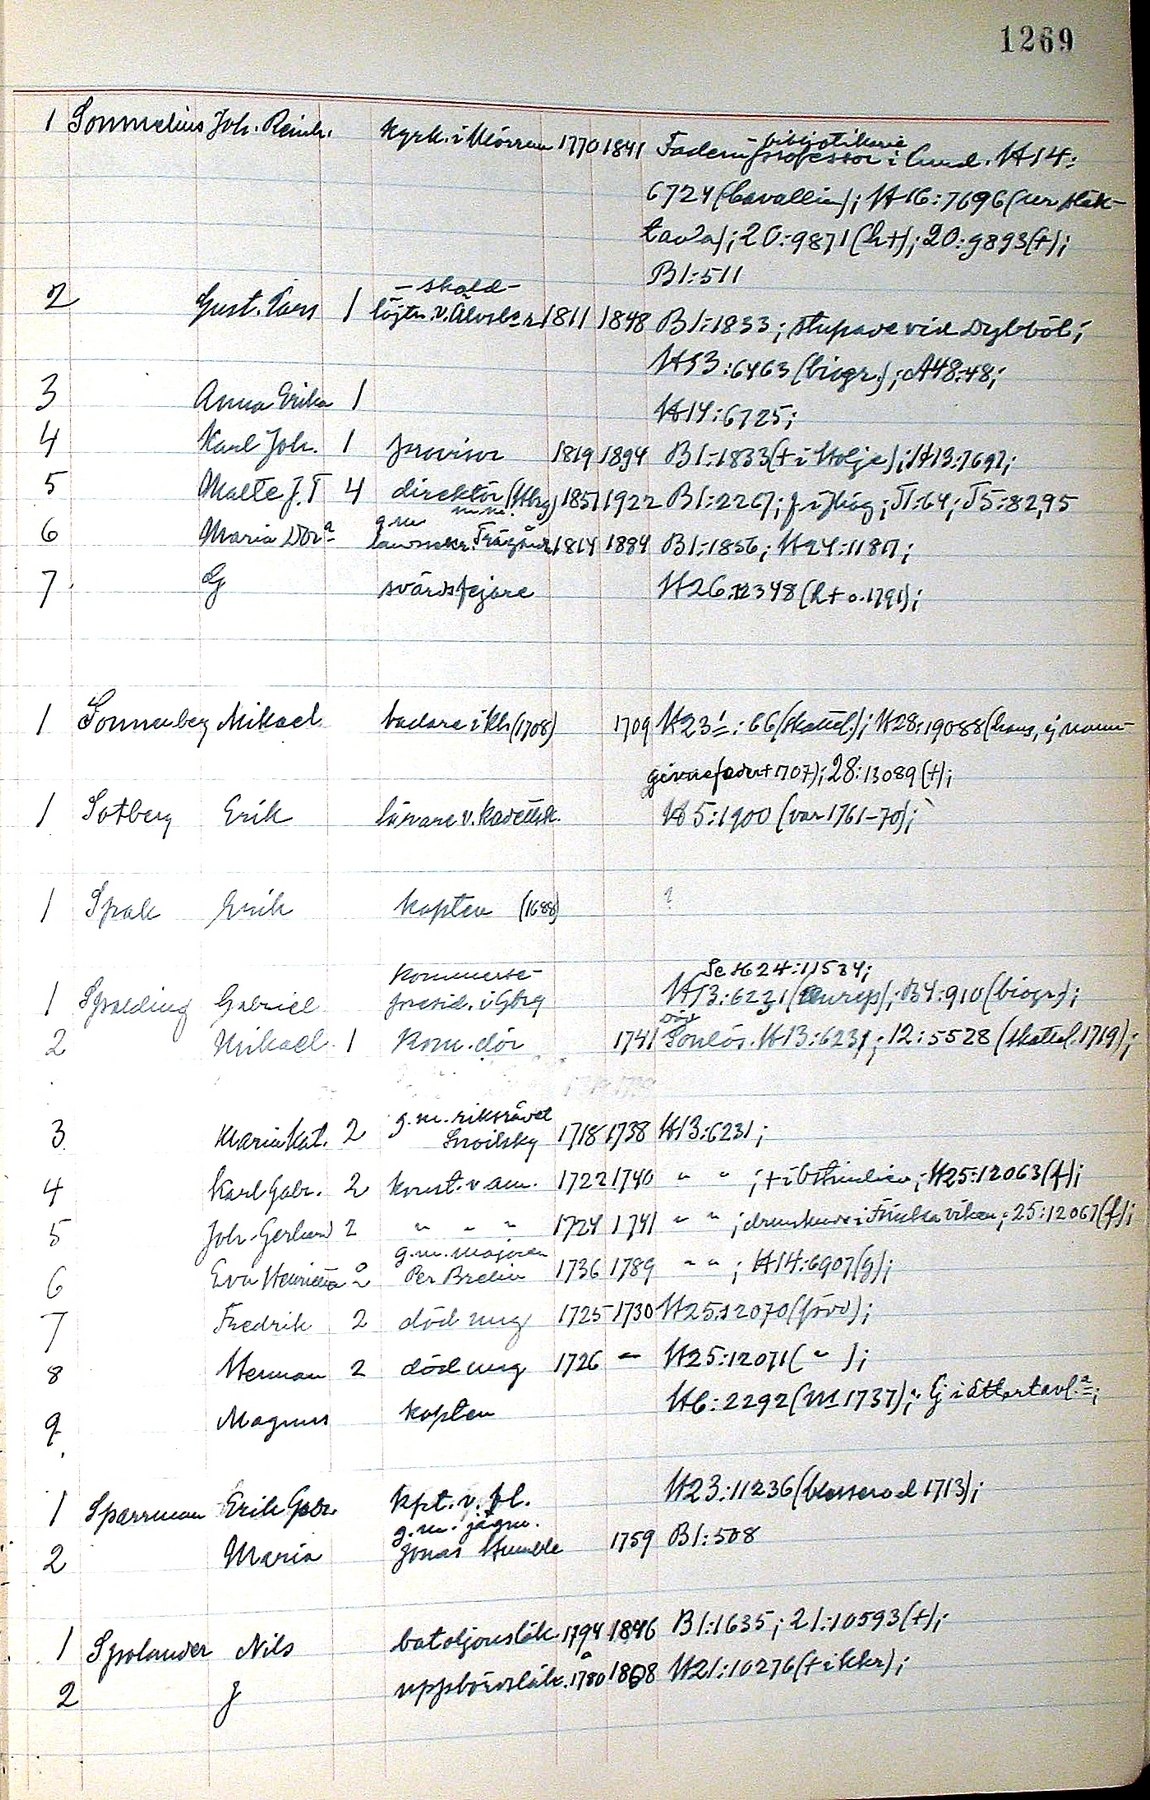 1269
1 Sommelius Joh. Reinh. Kyrk. i Mörrum 1770 1841 Fadern professor i Lund. H14:
- bibliotikarie
6724 (Cavallin); H16:7696 (ur släk-
tavla); 20:9871 (h+); 20:9893 (+);
B1:511
- skald -
2 Gust. Lars 1 löjtn. v. Älvsb. r. 1811 1848 B1:1833; stupade vid Dybböl;
H13:6463 (biogr.); A48:48;
3 Anna Erika 1 H14:6725;
4 Karl Joh. 1 provisor 1819 1894 B1:1833 (+ i Holje); H13:7691;
5 Malte J. T 4 direktör (Hbg) 1857 1922 B1:2267; J1:64; J5:82,95
m.m.
g.m.
6 Maria Dor:a 1814 1884 B1:1856; H24:11817;
7 G svärdsfejare H26:12348 (h+ o. 1791);
1 Sonnenberg Mikael badare i Kh (1708) 1709 H23:1:66 (skattel.); H28:19088 (hans, ej namn-
givne fader + 1707); 28:13089 (+);
1 Sotberg Erik lärare v. Kadettsk. H5:1900 (var 1761-70);
1 Spak Erik kapten (1688) ?
Kommerse- Se H24:11534;
1 Spalding Gabriel presid. i Gbrg H13:6231; B4:910 (biogr);
2 Mikael 1 Kom. dör 1741 Sonlös. H13:6231; 12:5528 (skattel. 1719);
g.m. riksrådet
3 Maria Kat. 2 Snoilsky 1718 1738 H13:6231;
4 Karl Gabr. 2 konst. v am. 1722 1740 " " ; + i Ostindien; H25:12063 (f);
5 Joh. Gerhard 2 " " " 1724 1741 " " ; drunknade i Finska viken; 25:12067 (f);
g.m. majoren
6 Eva Henrietta 2 Per Brelin 1736 1789 " " ; H14:6907 (g);
7 Fredrik 2 död ung 1725 1730 H25:12070 (född);
8 Herman 2 död ung 1726 - H25:12071 ( " );
9 Magnus kapten H6:2292 (m 1737); Ej i ättartavl:a;
1 Sparrman Erik Gabr. Kpt. v. fl. H23:11236 (blesserad 1713);
g.m. jägm.
2 Maria Jonas Humble 1759 B1:508
1 Spolander Nils bataljonsläk. 1794 1846 B1:1635; 21:10593 (+);
2 J uppbördsläk. 1780 1808 H21:10276 (+ i kkr);